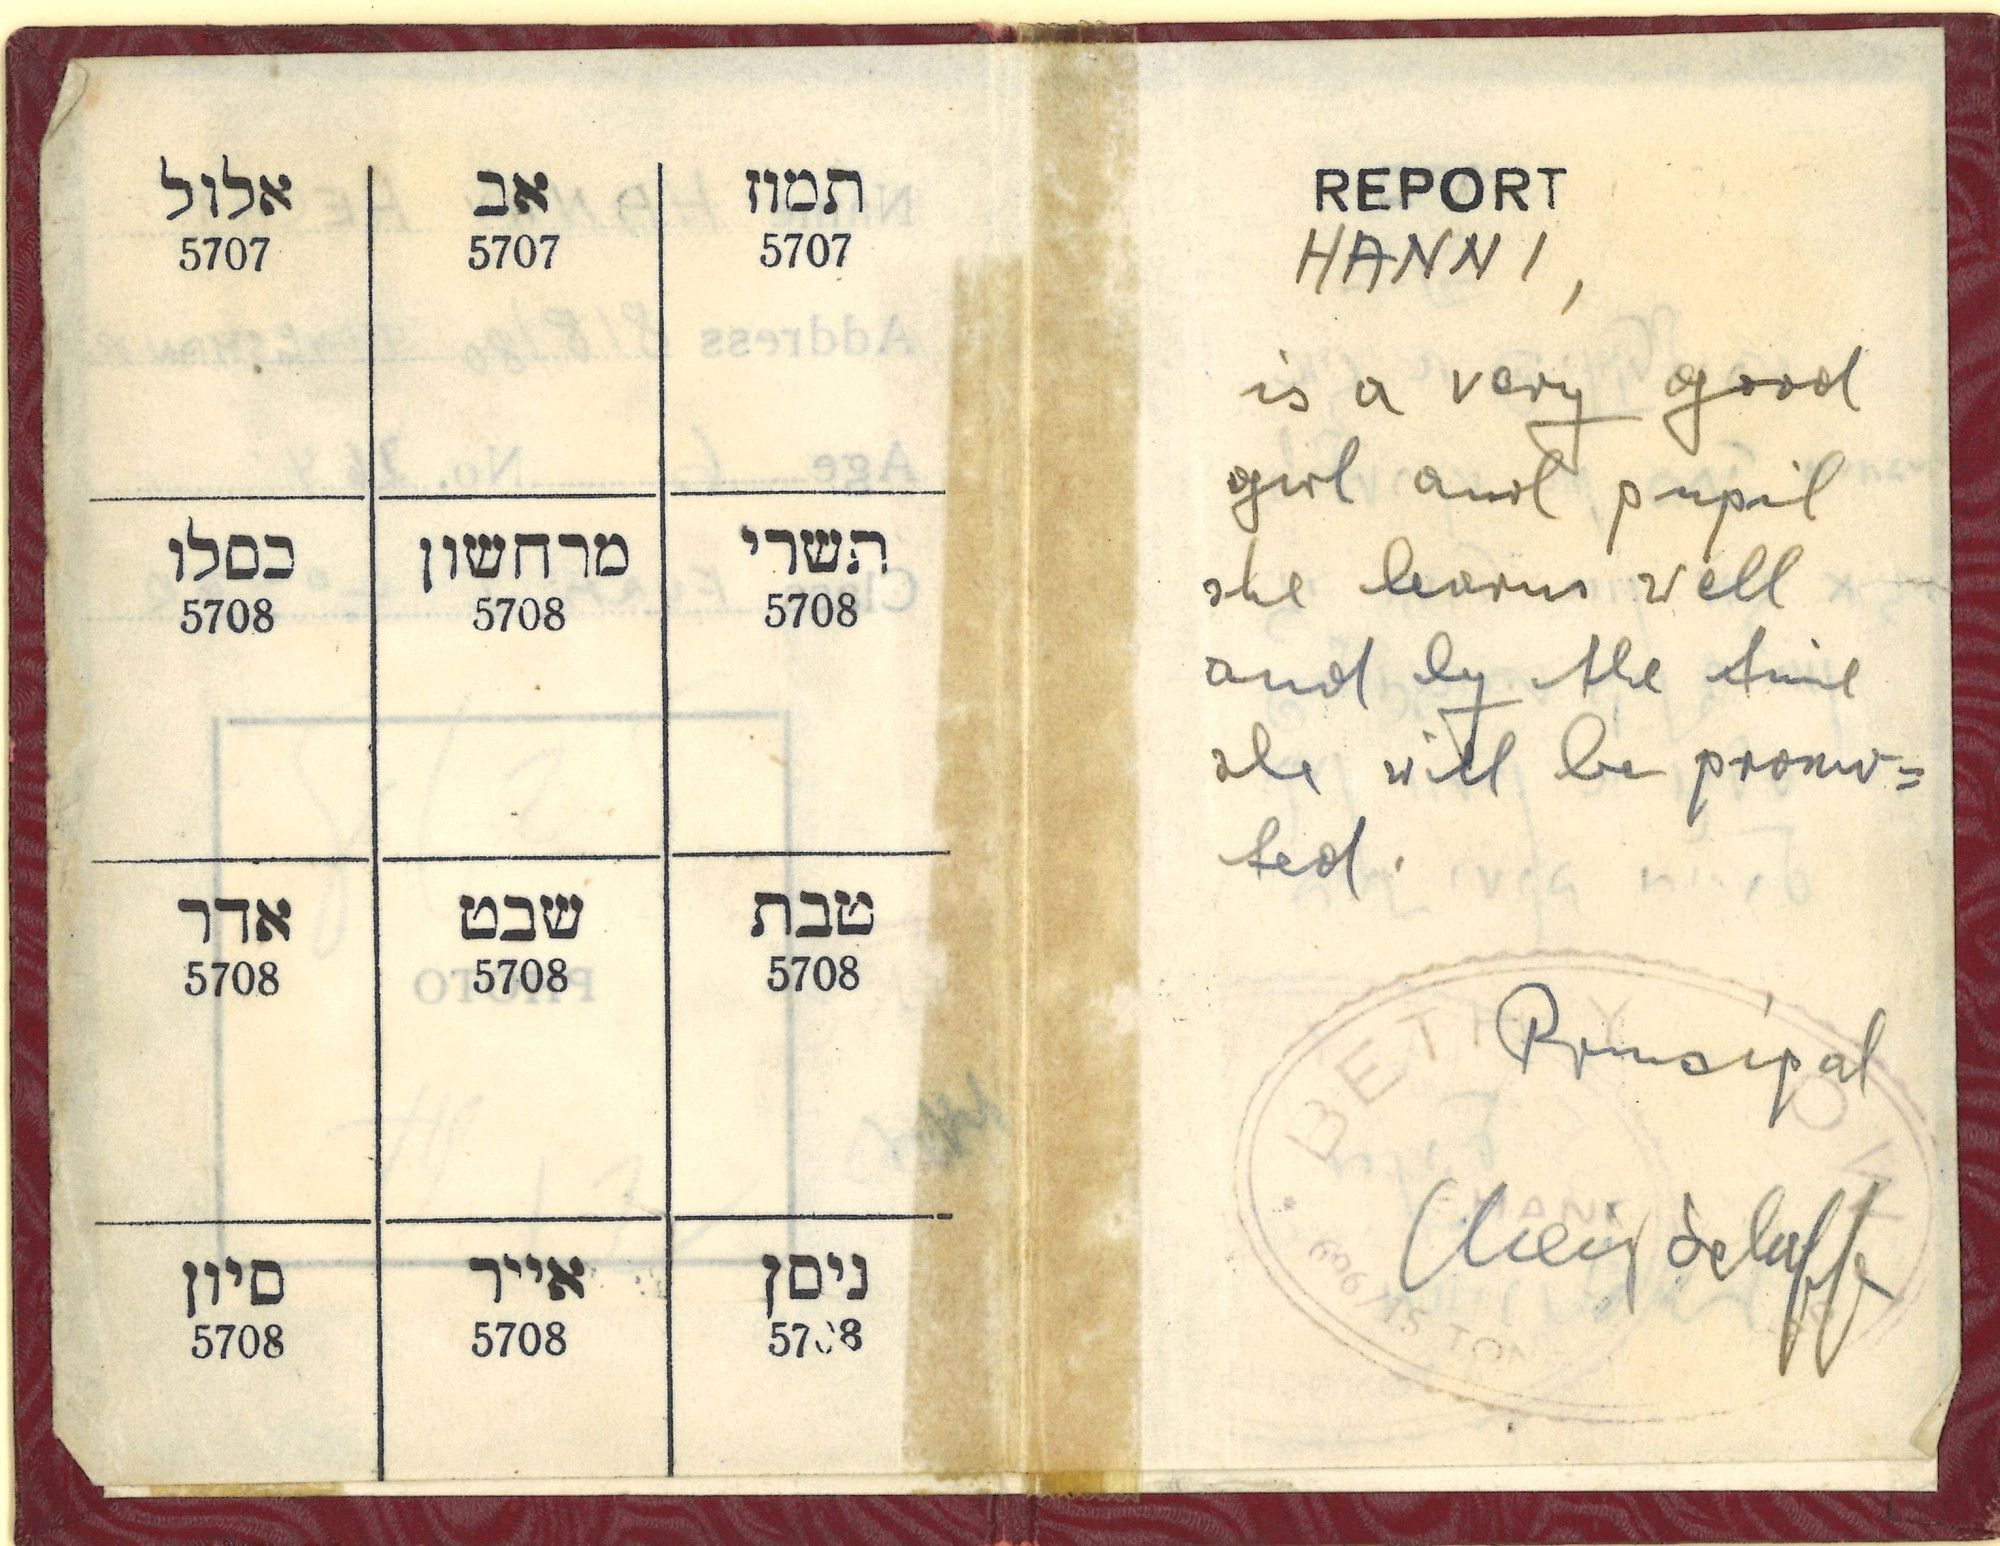 תמוז אב אלול
5707 5707 5707
תשרי מרחשון כסלו
5708 5708 5708
טבת שבט אדר
5708 5708 5708
ניסן אייר סיון
5708 5708 5708
REPORT
HANNI,
is a very good
girl and pupil
she learns well
and by the time
she will be promo=
ted.
Prinsipal
BETH
SHANG